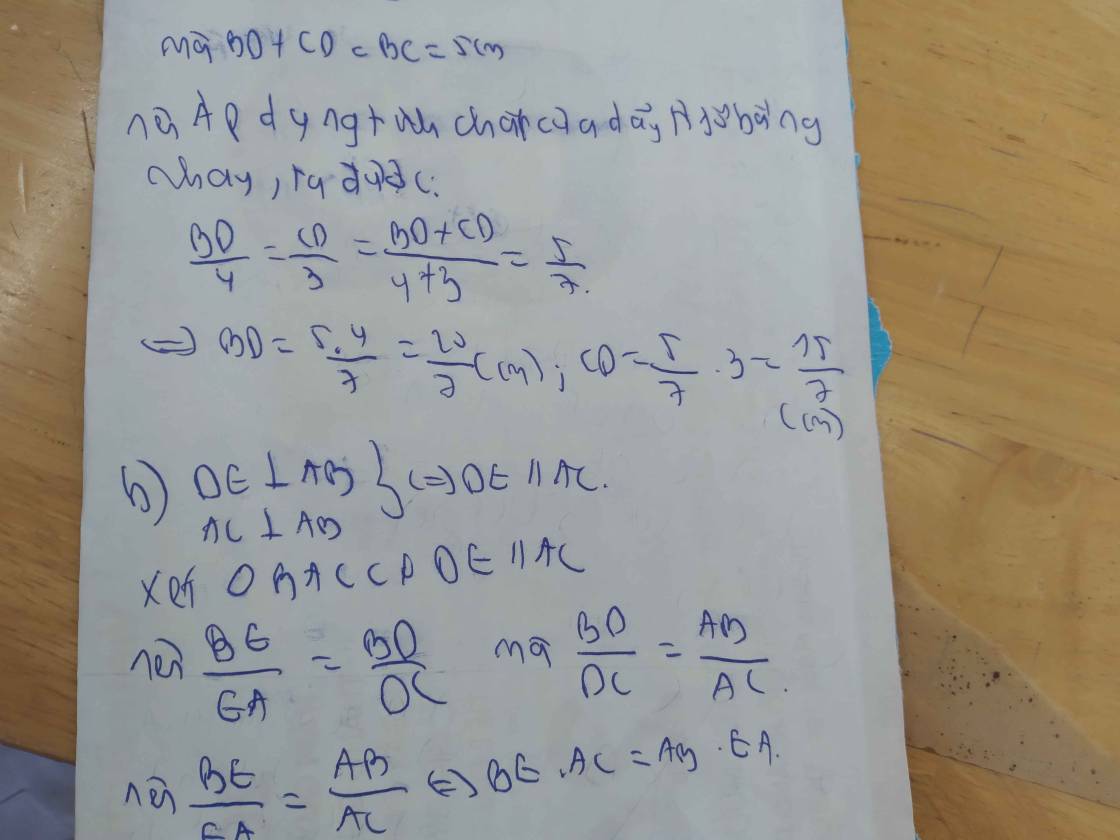 mà BD + CD = BC = 5cm
nên Áp dụng tính chất của dãy tỉ số bằng
nhau, ta được:
BD/4 = CD/3 = BD+CD/4+3 = 5/7.
=> BD = 5.4/7 = 20/7 (cm); CD = 5/7 . 3 = 15/7 (cm)
b) DE ⊥ AB } <=> DE // AC.
AC ⊥ AB
xét Δ BAC có DE // AC
nên BE/EA = BD/DC mà BD/DC = AB/AC.
nên BE/EA = AB/AC <=> BE . AC = AB . EA.